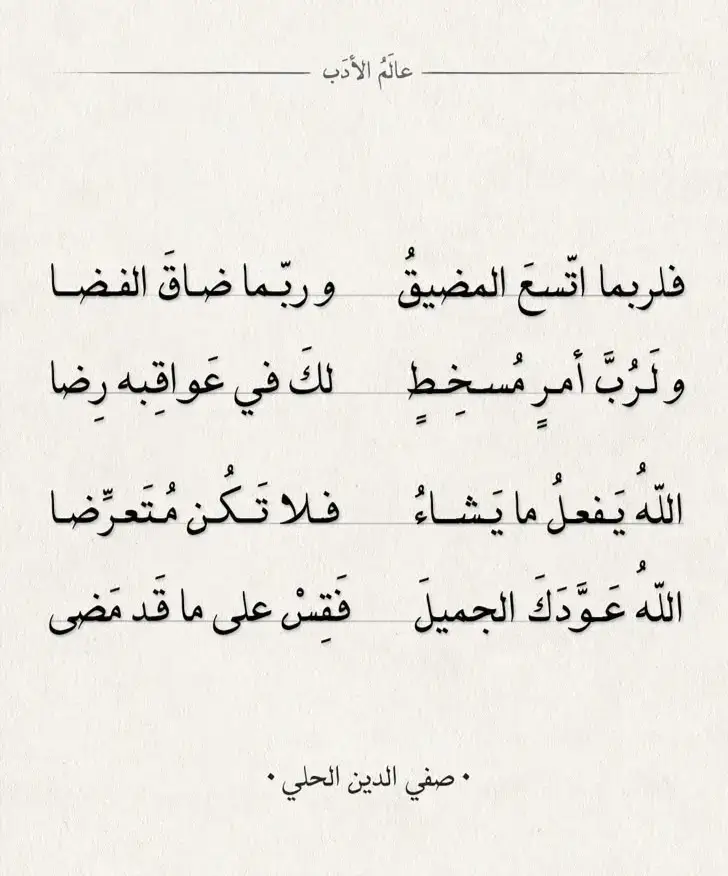 عالَمُ الأدَب
فلربما اتّسعَ المضيقُ وربّما ضاقَ الفضا
ولَرُبَّ أمرٍ مُسخِطٍ لكَ في عَواقِبه رِضا
اللّهُ يَفعلُ ما يَشاءُ فلا تَكُن مُتَعرِّضا
اللّهُ عَوَّدَكَ الجميلَ فَقِسْ على ما قَد مَضى
• صفي الدين الحلي •